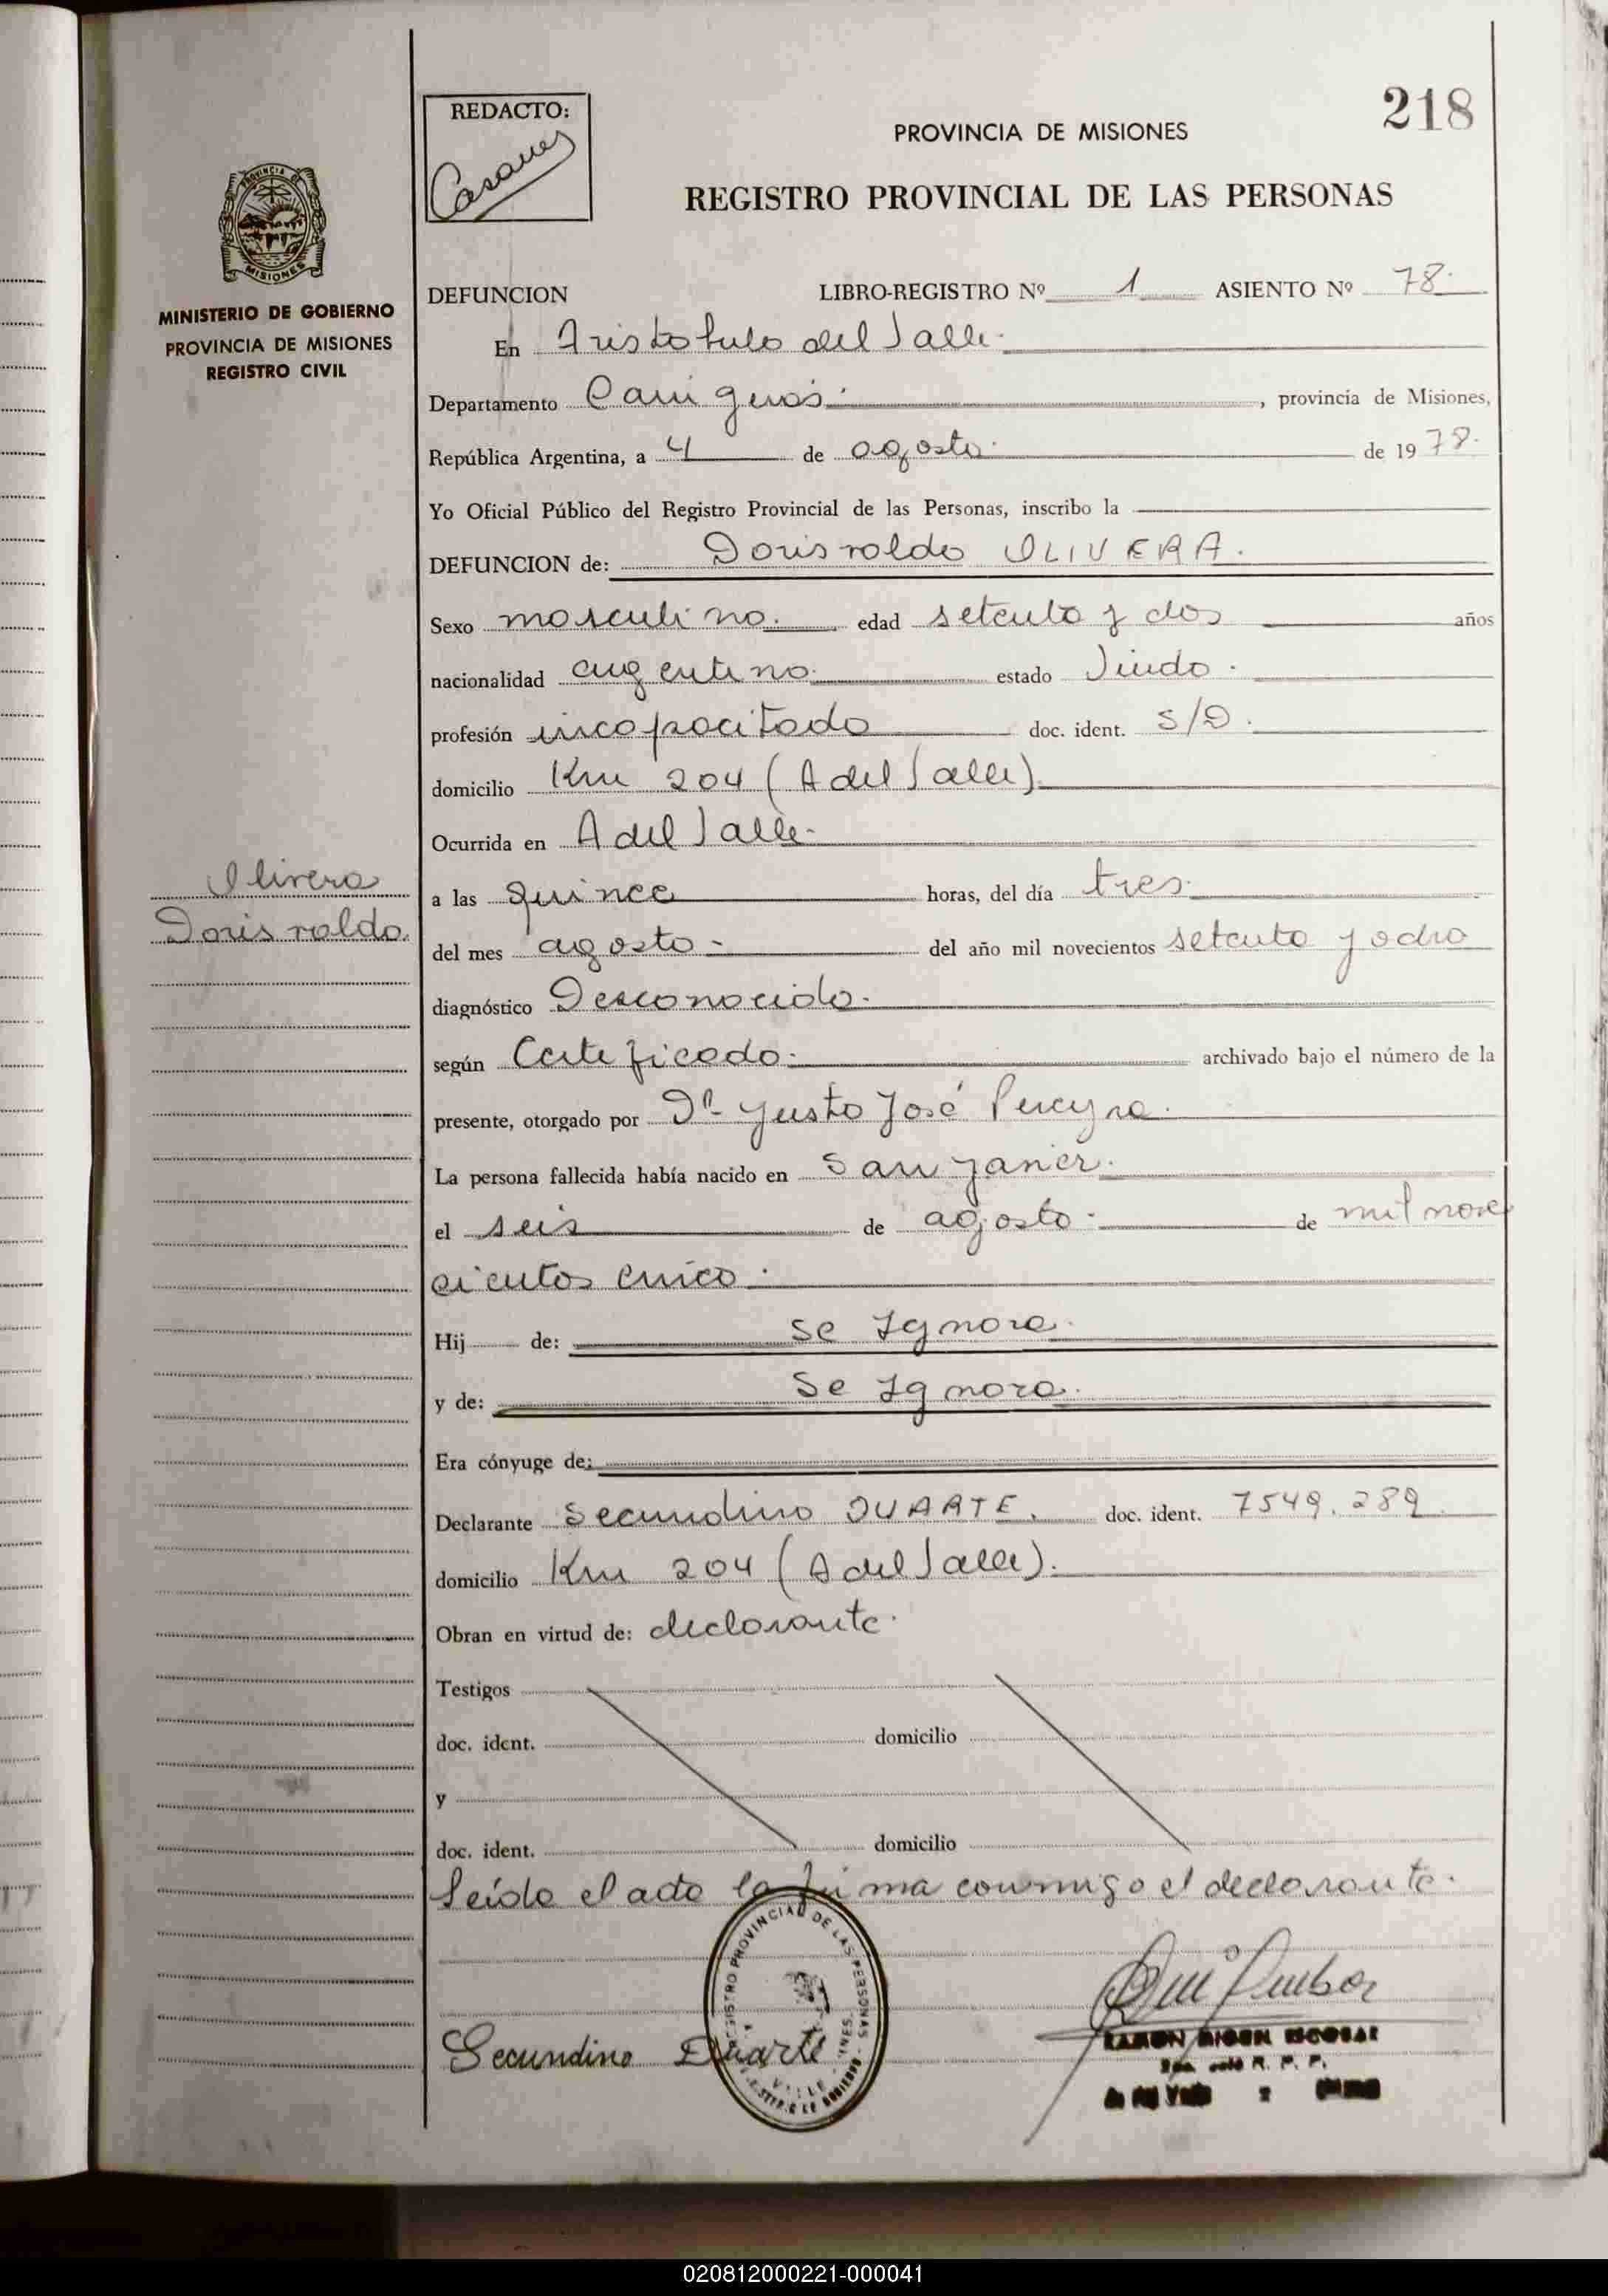 218
REDACTO:
Casanes
PROVINCIA DE MISIONES
REGISTRO PROVINCIAL DE LAS PERSONAS
PROVINCIA DE
MISIONES
MINISTERIO DE GOBIERNO
PROVINCIA DE MISIONES
REGISTRO CIVIL
DEFUNCION LIBRO-REGISTRO Nº 1 ASIENTO Nº 78.
En Aristobulo del Valle.
Departamento Cainguas. , provincia de Misiones,
República Argentina, a 4 de agosto. de 1978.
Yo Oficial Público del Registro Provincial de las Personas, inscribo la
DEFUNCION de: Dorisvaldo OLIVERA.
Sexo masculino. edad setenta y dos años
nacionalidad argentino. estado Viudo.
profesión incapacitado doc. ident. S/D.
domicilio Km 204 (A del Valle)
Ocurrida en A del Valle.
Olivera
a las quince horas, del día tres.
Dorisvaldo.
del mes agosto - del año mil novecientos setenta y ocho
diagnóstico Desconocido.
según Certificado. archivado bajo el número de la
presente, otorgado por Dr. Justo José Pereyra.
La persona fallecida había nacido en San Janier.
el seis de agosto. de mil nove
cientos cinco.
Hij de: se Ignora.
y de: Se Ignora.
Era cónyuge de:
Declarante Secundino DUARTE. doc. ident. 7549.289.
domicilio Km 204 (A del Valle).
Obran en virtud de: declarante.
Testigos
doc. ident. domicilio
y
doc. ident. domicilio
Leída el acta la firma conmigo el declarante.
REGISTRO PROVINCIAL DE LAS PERSONAS
Secundino Duarte
RAMON ESCOBAR
R. P. P.
020812000221-000041